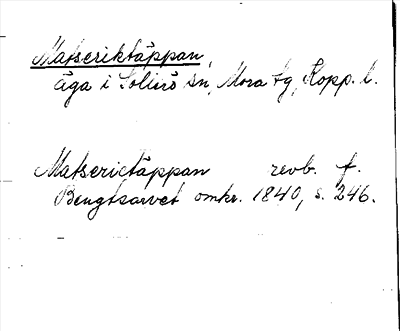 Matseriktäppan,
äga i Sollerö sn, Mora tg, Kopp. l.
Matserictäppan revb. f.
Bengtsarvet omkr. 1840, s. 246.